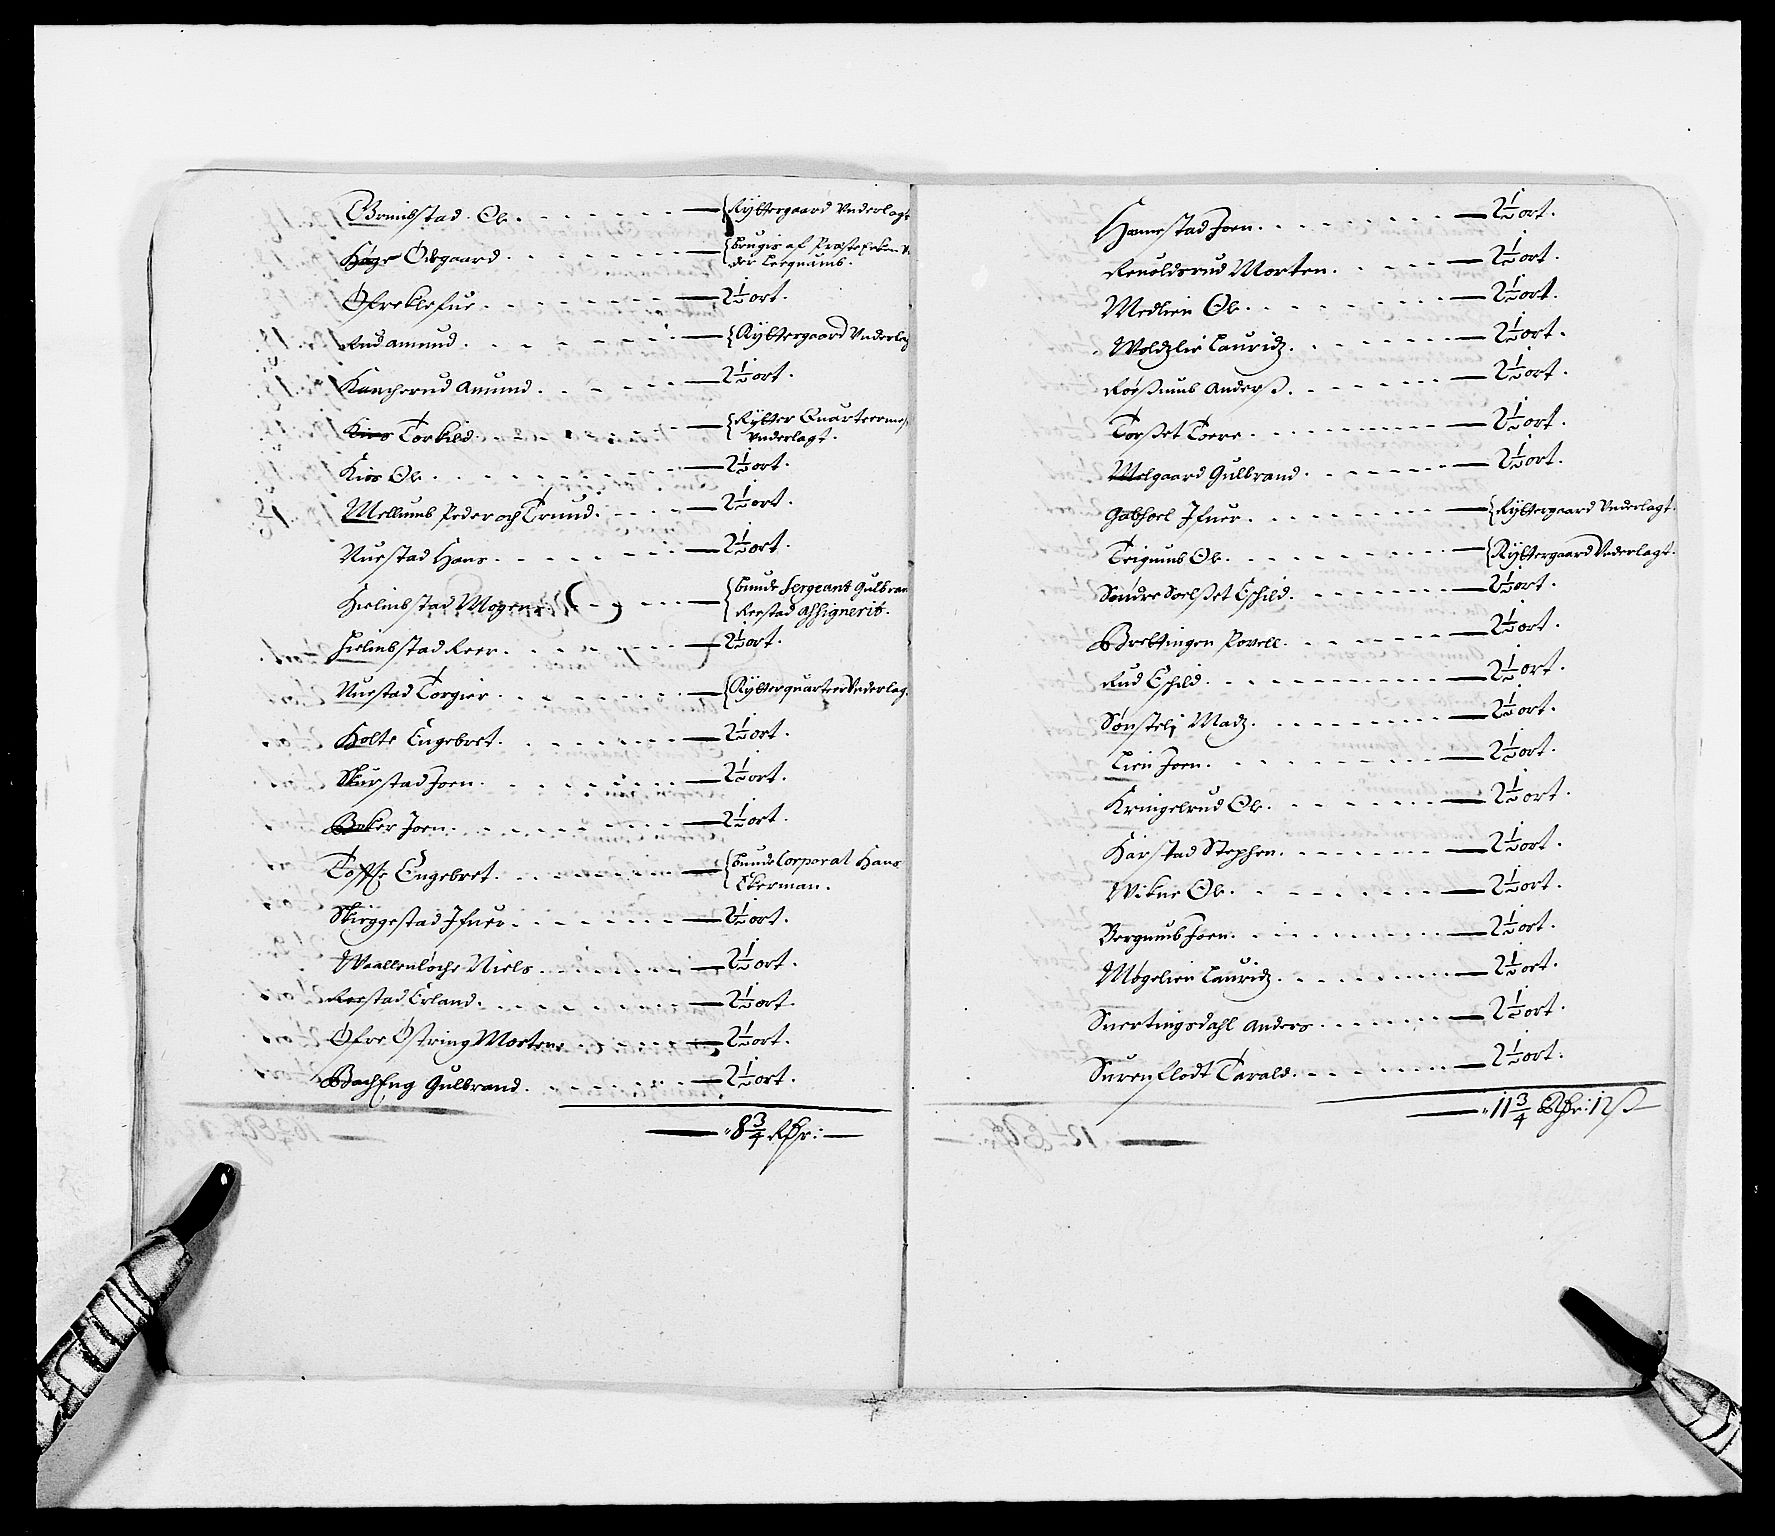 Brunbstad Ole. {Rytter­gaard Underlagt
Høge Odegaard {brugis af Præste Encken un
der Leegnumb.
Øfre Klefue 2½ ort.
Rud Amund {Ryttergaard Underlag
Kancherud Amund 2½ ort.
Kios Torkild {Rytter Quarteermes
Underlagt.
Kios Ole 2½ ort.
Mellumb Peder och Trund 2½ ort.
Nuestad Hans 2½ ort.
Hielmbstad Mogens {bunde Sergeant Gulbran
Reestad Assignerit.
Hielmbstad Reer 2½ ort.
Nuestad Torgier {Rytterquarteer Underlag
Holte Engebret 2½ ort.
Skurstad Joen 2½ ort.
Boker Joen 2½ ort.
Toffte Engebret {bunde Corporal Hans
Ekerman.
Skieggestad Ifuer 2½ ort.
Waallenløche Niels 2½ ort.
Reestad Erland 2½ ort.
Øfre Østring Morten 2½ ort.
Bach Eng Gulbrand 2½ ort.
8¾ Rdr:
Hannestad Joen 2½ ort.
Reuoldsrud Morten 2½ ort.
Medlien Ole 2½ ort.
Woldzlie Lauridz 2½ ort.
Røeßumb Anderß 2½ ort.
Torßet Toere 2½ ort.
Melgaard Gulbrand 2½ ort.
Gabhoel Ifuer {Ryttergaard Underlagt.
Teigumb Ole {Ryttergaard Underlagt.
Søndre Soelßet Eschild 2½ ort.
Brettingen Povell 2½ ort.
Rud Eschild 2½ ort.
Sønstely Madz 2½ ort.
Lien Joen 2½ ort.
Kringelrud Ole 2½ ort.
Harstad Stephen 2½ ort.
Wiknie Ole 2½ ort.
Bergumb Joen 2½ ort.
Møgelien Lauridz 2½ ort.
Snertingsdahl Anders 2½ ort.
Suren Flodt Tarald 2½ ort.
11¾ Rdr: 12 ß